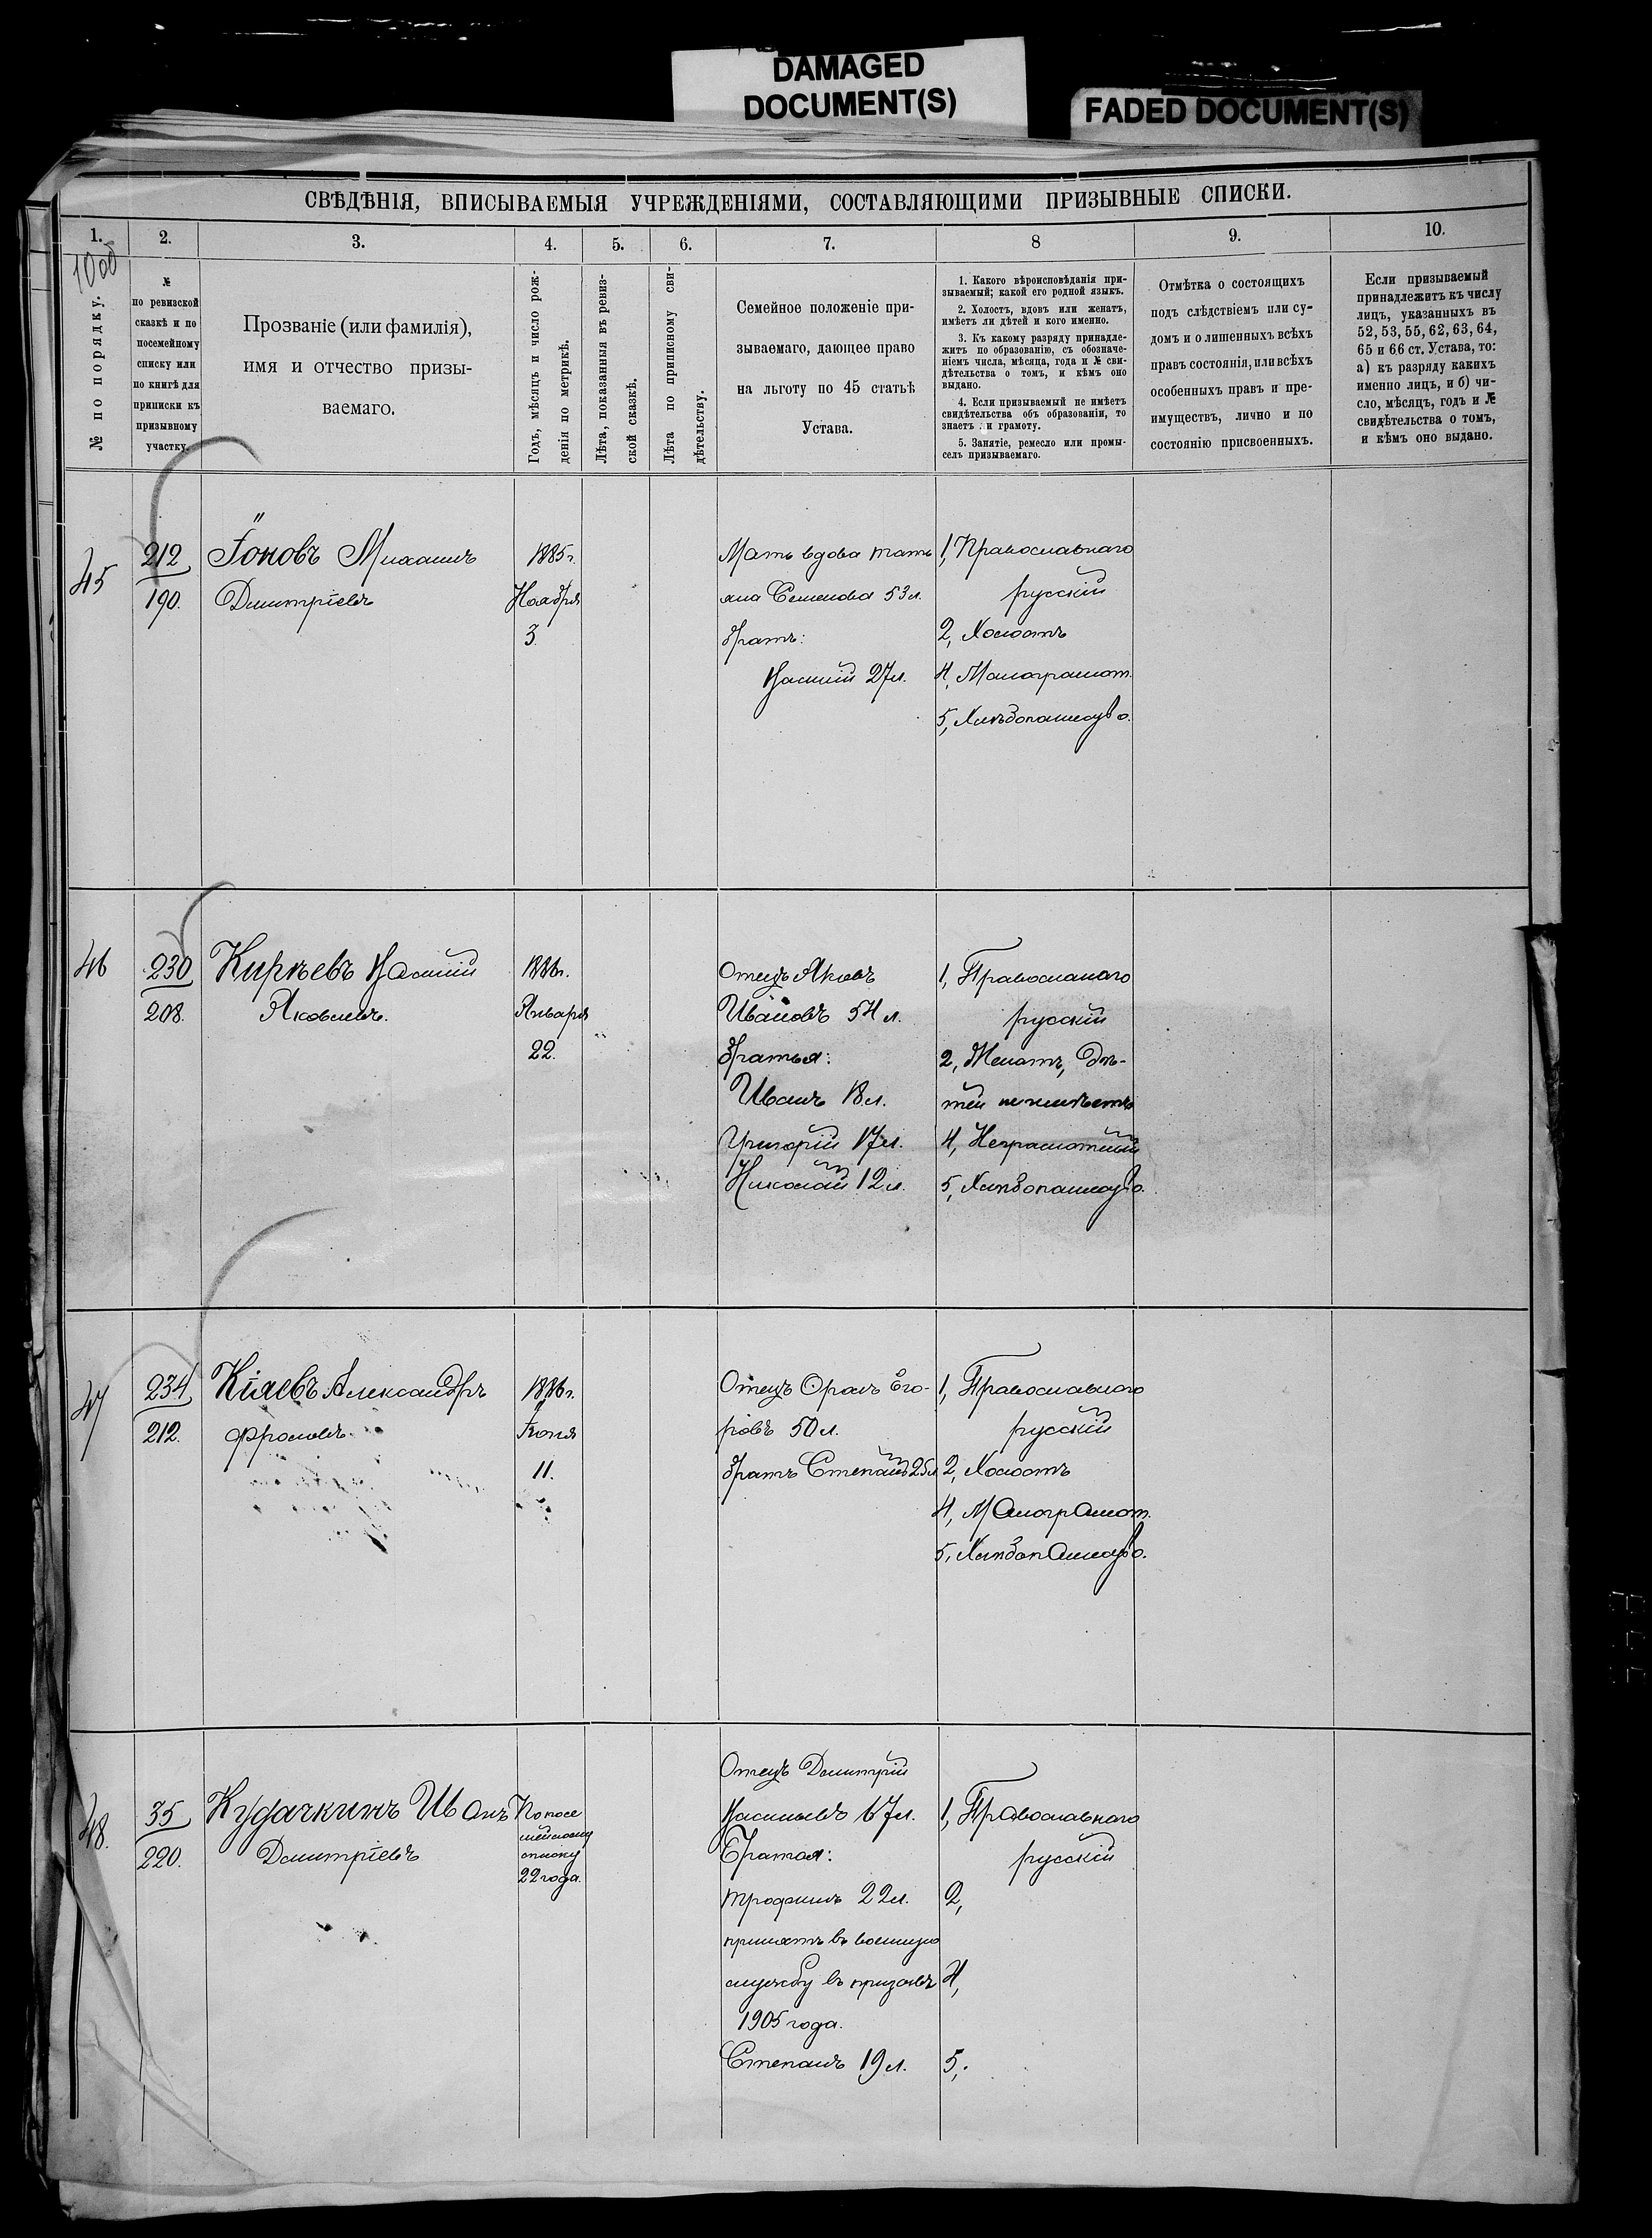 DAMAGED
DOCUMENT(S)
FADED DOCUMENT(S)
СВѢДѢНІЯ, ВПИСЫВАЕМЫЯ УЧРЕЖДЕНІЯМИ, СОСТАВЛЯЮЩИМИ ПРИЗЫВНЫЕ СПИСКИ.
1.
2.
3.
4.
5.
6.
7.
8
9.
10.
№ по порядку.
№
по ревизской
сказкѣ и по
посемейному
списку или
по книгѣ для
приписки къ
призывному
участку.
Прозваніе (или фамилія),
имя и отчество призы-
ваемаго.
Годъ, мѣсяцъ и число рож-
денія по метрикѣ.
Лѣта, показанныя въ ревиз-
ской сказкѣ.
Лѣта по приписному сви-
дѣтельству.
Семейное положеніе при-
зываемаго, дающее право
на льготу по 45 статьѣ
Устава.
1. Какого вѣроисповѣданія при-
зываемый; какой его родной языкъ.
2. Холостъ, вдовъ или женатъ,
имѣетъ ли дѣтей и кого именно.
3. Къ какому разряду принадле-
житъ по образованію, съ обозначе-
ніемъ числа, мѣсяца, года и № сви-
дѣтельства о томъ, и кѣмъ оно
выдано.
4. Если призываемый не имѣетъ
свидѣтельства объ образованіи, то
знаетъ ли грамоту.
5. Занятіе, ремесло или промы-
селъ призываемаго.
Отмѣтка о состоящихъ
подъ слѣдствіемъ или су-
домъ и о лишенныхъ всѣхъ
правъ состоянія, или всѣхъ
особенныхъ правъ и пре-
имуществъ, лично и по
состоянію присвоенныхъ.
Если призываемый
принадлежитъ къ числу
лицъ, указанныхъ въ
52, 53, 55, 62, 63, 64,
65 и 66 ст. Устава, то:
а) къ разряду какихъ
именно лицъ, и б) чи-
сло, мѣсяцъ, годъ и №
свидѣтельства о томъ,
и кѣмъ оно выдано.
45
212
190.
Іоновъ Михаилъ
Дмитріевъ
1885 г.
Ноября
3
Мать вдова Тать
яна Семенова 53 л.
братъ:
Василій 27 л.
1, Православнаго
русскій
2, Холостъ
4, Малограмот.
5, Хлѣбопашество.
46
230
208.
Кирѣевъ Василій
Яковлевъ.
1886 г.
Января
22.
Отецъ Яковъ
Ивановъ 54 л.
братья:
Иванъ 18 л.
Григорій 17 л.
Николай 12 л.
1, Православнаго
русскій
2, Женатъ, дѣ-
тей не имѣетъ
4, Неграмотный
5, Хлѣбопашество.
47
234
212.
Кіяевъ Александръ
Фроловъ
1886 г.
Іюня
11.
Отецъ Фролъ Его-
ровъ 50 л.
братъ Степанъ 25 л
1, Православнаго
русскій
2, Холостъ
4, Малограмот.
5, Хлѣбопашество.
48.
35
220.
Кудачкинъ Иванъ
Дмитріевъ
По посе
мейному
списку
22 года.
Отецъ Дмитрій
Васильевъ 67 л.
Братья:
Трофимъ 22 л.
принятъ въ военную
службу въ призывъ
1905 года.
Степанъ 19 л.
1, Православнаго
русскій
2,
4,
5,